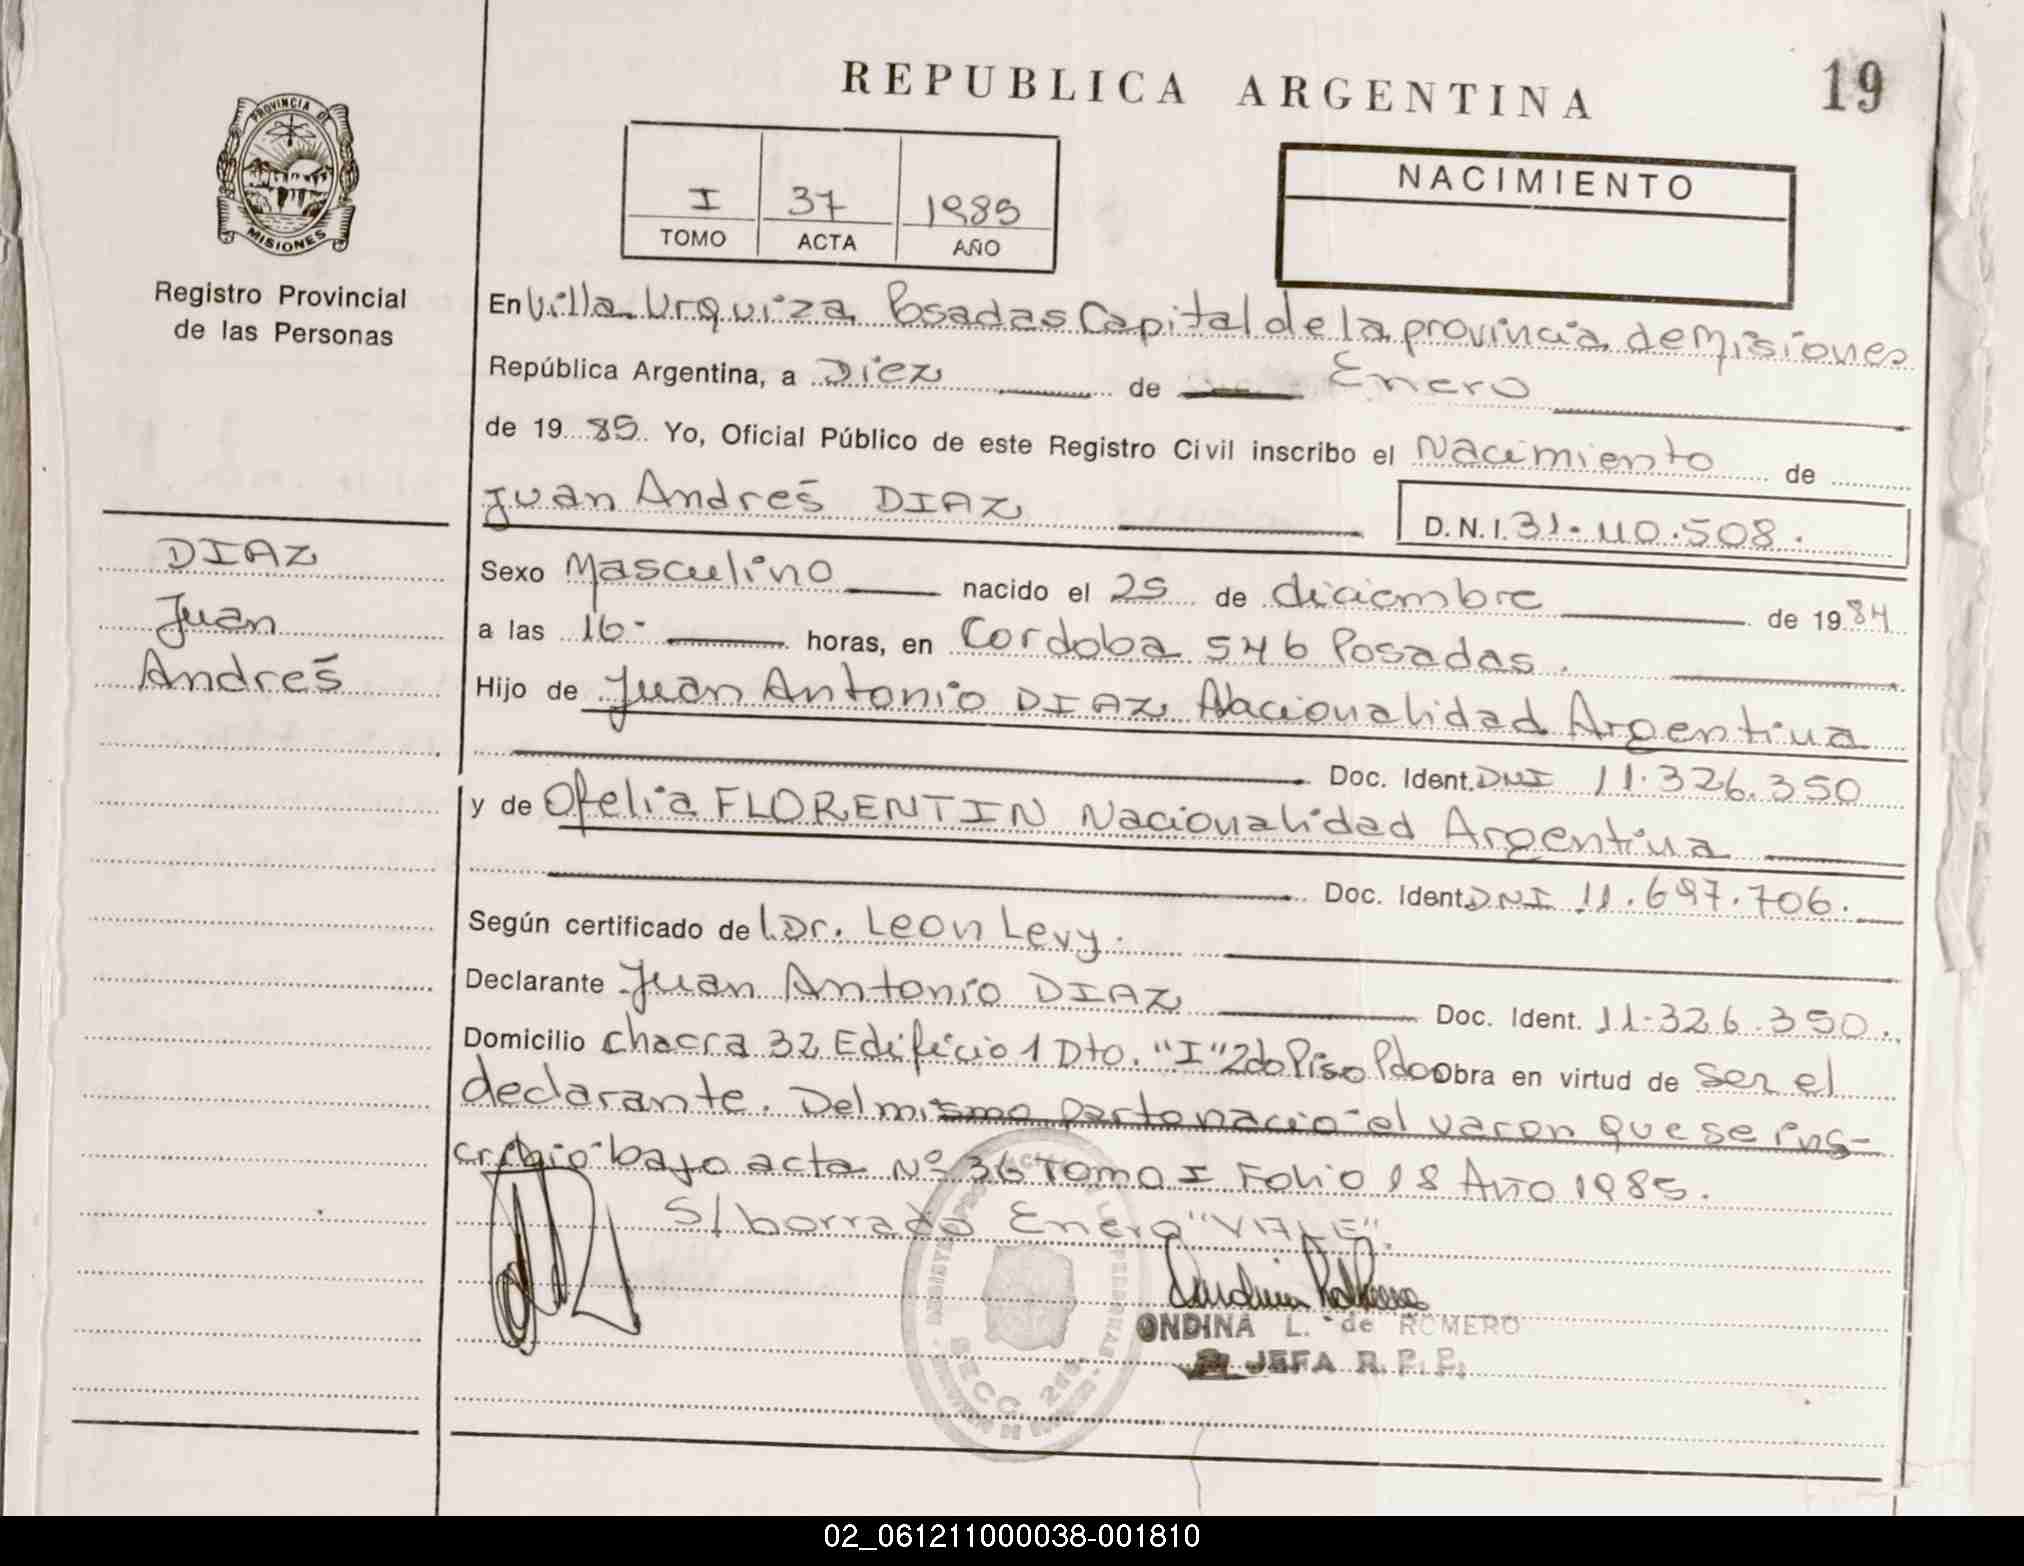 REPUBLICA ARGENTINA
19
PROVINCIA DE
MISIONES
Registro Provincial
de las Personas
I 37 1985
TOMO ACTA AÑO
NACIMIENTO
En Villa Urquiza Posadas Capital de la provincia de Misiones
República Argentina, a Diez de Enero
de 19 85 Yo, Oficial Público de este Registro Civil inscribo el Nacimiento de
Juan Andrés DIAZ D.N.I. 31.110.508.
DIAZ
Juan
Andrés
Sexo Masculino nacido el 25 de diciembre de 19 84
a las 16 horas, en Cordoba 546 Posadas.
Hijo de Juan Antonio DIAZ Nacionalidad Argentina
Doc. Ident. DNI 11.326.350
y de Ofelia FLORENTIN Nacionalidad Argentina
Doc. Ident. DNI 11.697.706.
Según certificado de l Dr. Leon Levy.
Declarante Juan Antonio DIAZ Doc. Ident. 11.326.350.
Domicilio chacra 32 Edificio 1 Dto. "I" 2do Piso Pdo Obra en virtud de ser el
declarante. Del mismo parto nació el varon que se ins-
cribió bajo acta Nº 36 Tomo I Folio 18 Año 1985.
S/borrado Enero "VALE".
ONDINA L. de ROMERO
JEFA R.P.P.
SECC.
02_061211000038-001810